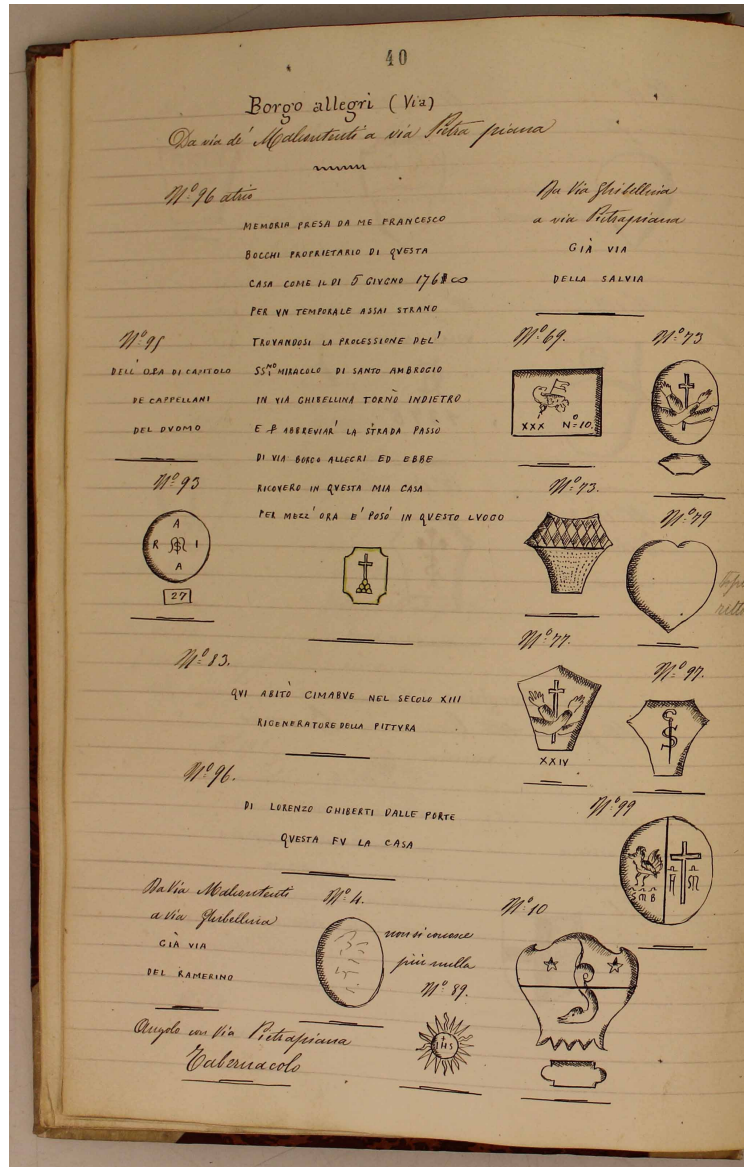 40
Borgo allegri (Via)
Da via de' Malcontenti a via Pietra piana
Nº 96 atrio
MEMORIA PRESA DA ME FRANCESCO
BOCCHI PROPRIETARIO DI QVESTA
CASA COME IL DI 5 GIVGNO
PER VN TEMPORALE ASSAI STRANO
TROVANDOSI LA PROCESSIONE DEL'
SSMO MIRACOLO DI SANTO AMBROGIO
IN VIA GHIBELLINA TORNÒ INDIETRO
E P ABBREVIAR' LA STRADA PASSÒ
DI VIA BORGO ALLEGRI ED EBBE
RICOVERO IN QVESTA MIA CASA
PER MEZZ' ORA E' POSÒ IN QVESTO LVOGO
Nº 95
DELL' OPA DI CAPITOLO
DE CAPPELLANI
DEL DVOMO
Nº 93
A
R I
A
27
Nº 83.
QVI ABITÒ CIMABVE NEL SECOLO XIII
RIGENERATORE DELLA PITTVRA
Nº 96.
DI LORENZO GHIBERTI DALLE PORTE
QVESTA FV LA CASA
Da Via Malcontenti
a via Ghibellina
GIÀ VIA
DEL RAMERINO
Nº 4.
non si conosce
più nulla
Nº 89.
IHS
Angolo con Via Pietrapiana
Tabernacolo
Da Via Ghibellina
a via Pietrapiana
GIÀ VIA
DELLA SALVIA
Nº 69.
XXX Nº=10.
Nº 73
Nº 73.
Nº 79
Nº 77.
XXIV
Nº 97.
Nº 99
S M B
Nº 10